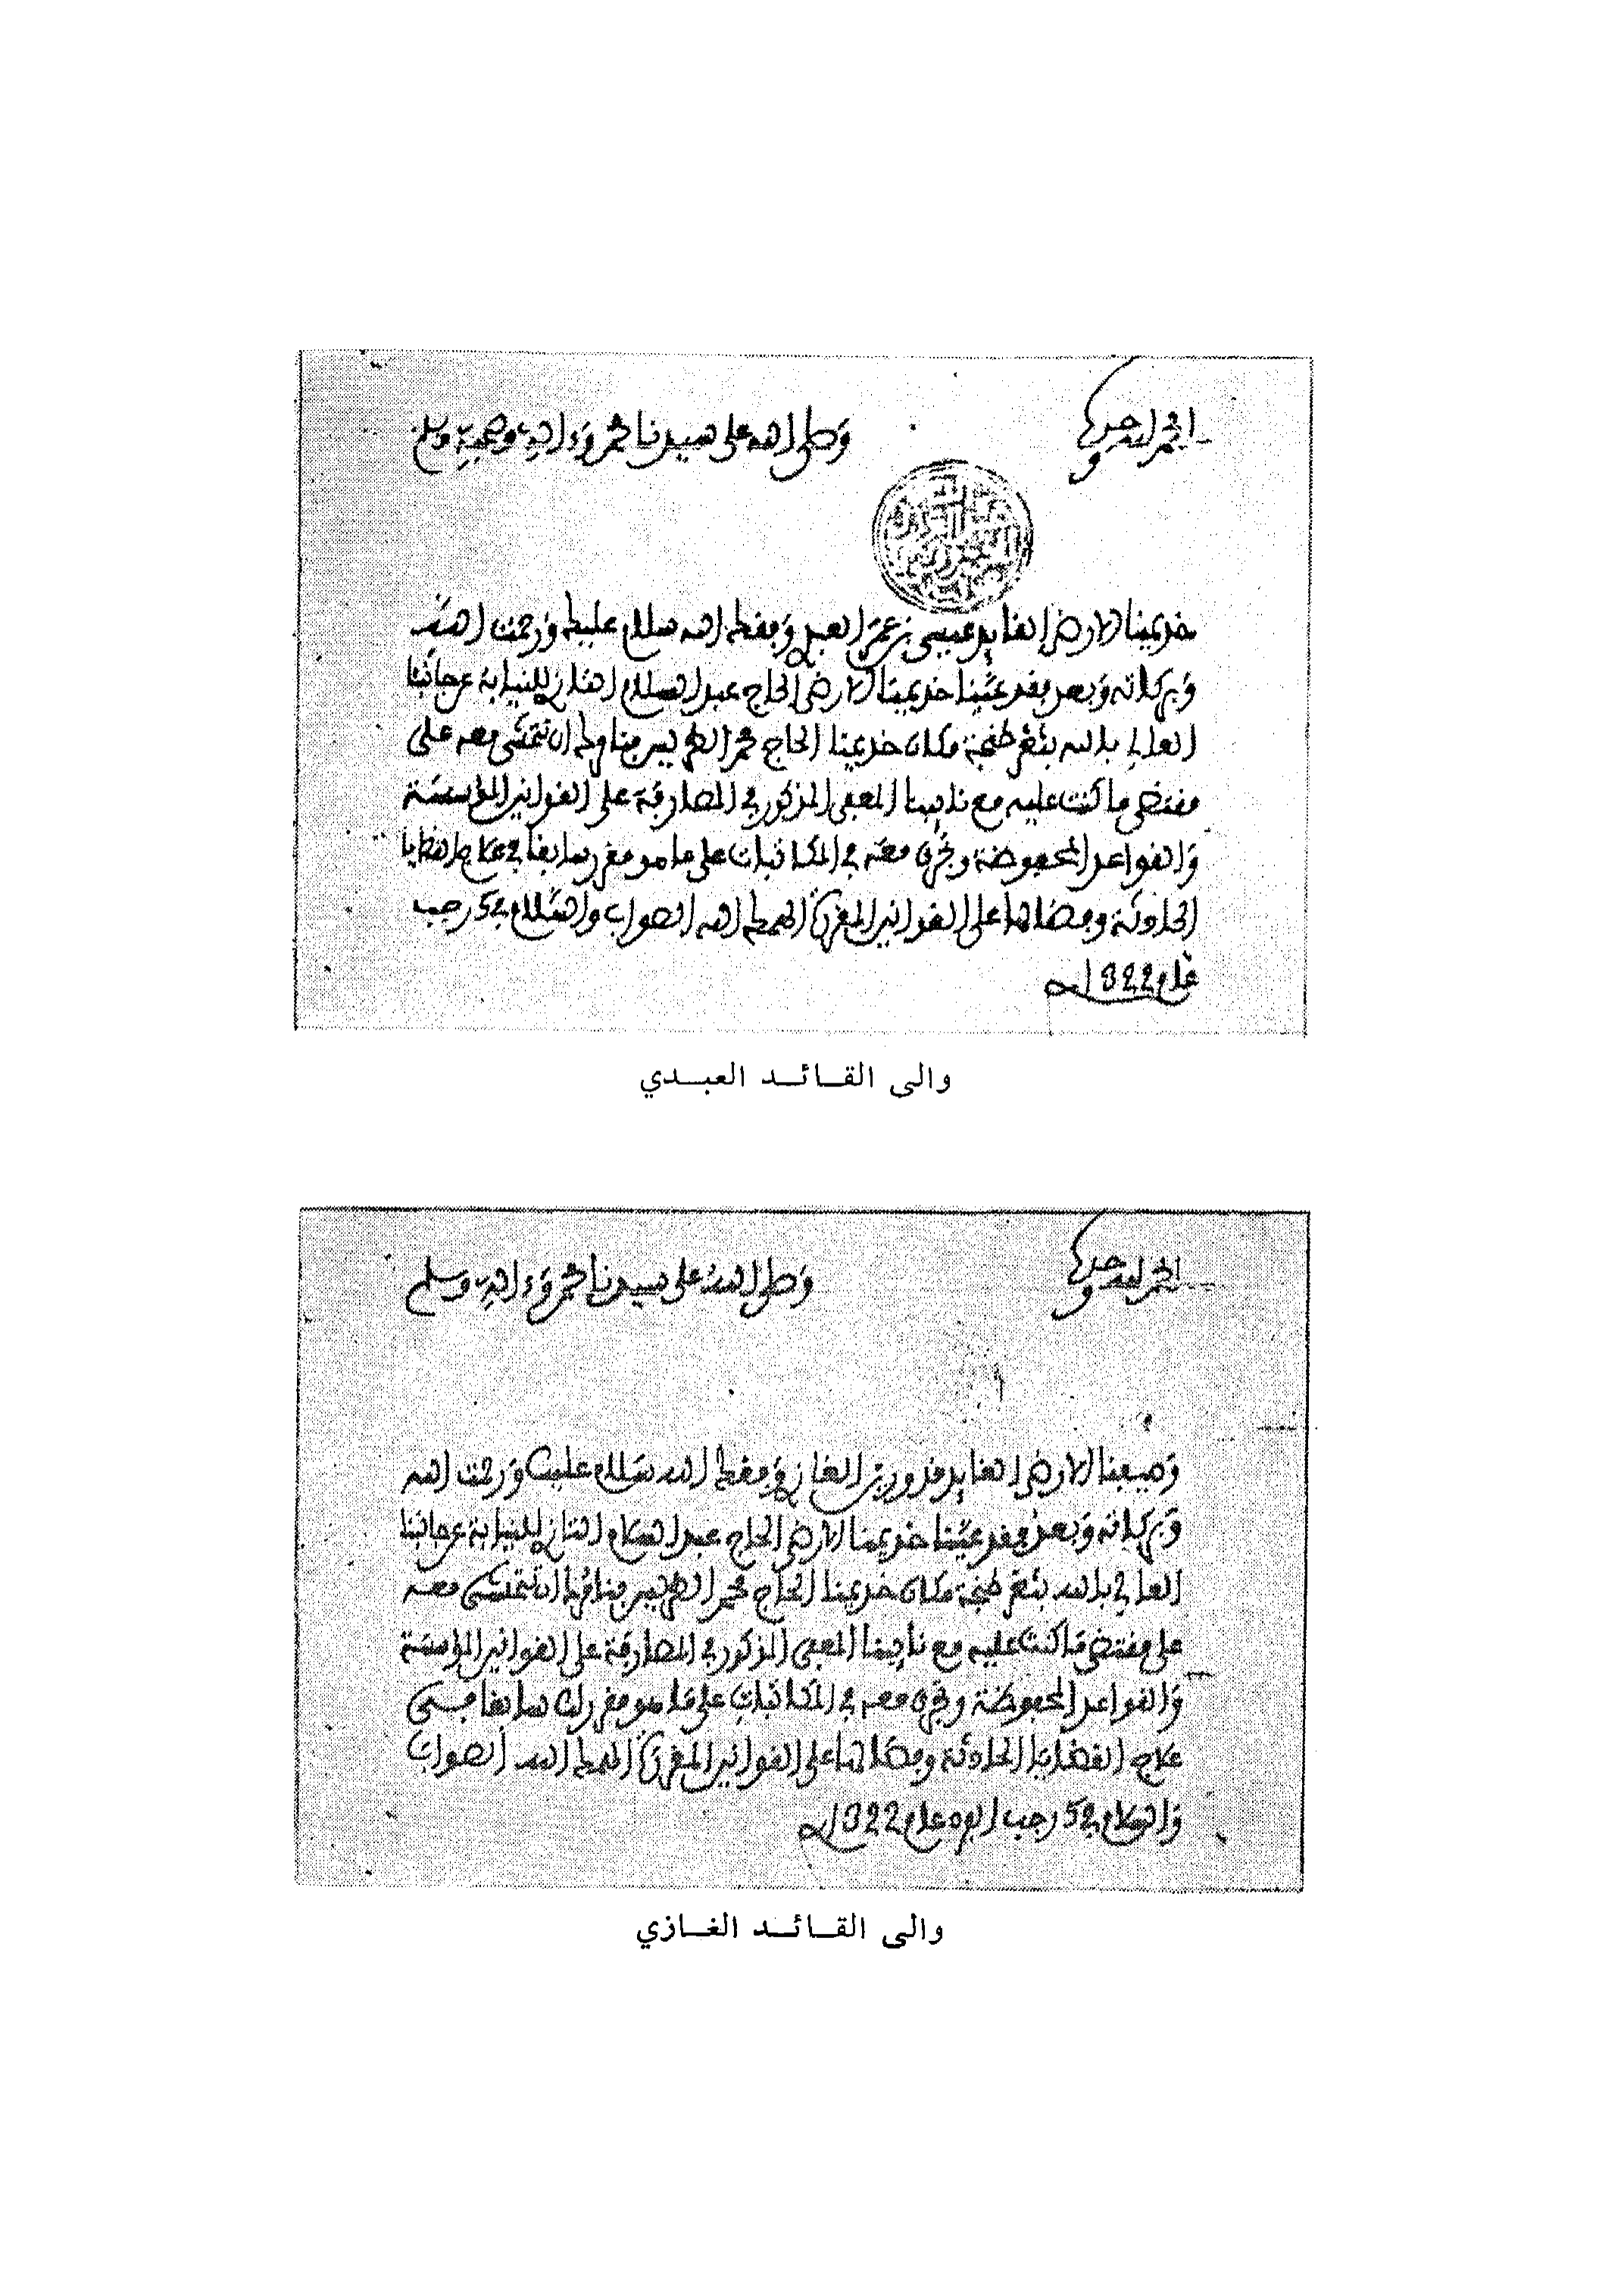 الحمد لله وحده
وصلى الله على سيدنا محمد وءاله وصحبه وسلم
خديمنا الارضى القايد عيسى بن عمر العبدي وفقك الله سلام عليك ورحمت الله
وبركاته وبعد فقد عينا خديمنا الارضى الحاج عبد السلام التازي للنيابة عن جانبنا
العالي بالله بثغر طنجة مكان خديمنا الحاج محمد الطريس فنامرك ان تتمشى معه على
مقتضى ما كنت عليه مع نايبنا المعفى المذكور في المصارفة على القوانين المؤسسة
والقواعد المحفوظة وتجري معه في المكاتبات على ما هو مقرر سابقا في علاج القضايا
الحادثة وفصالها على القوانين المقررة الهمك الله الصواب والسلام في 25 رجب
عام 1322
والى القائد العبدي
الحمد لله وحده
وصلى الله على سيدنا محمد وءاله وسلم
وصيفنا الارضى القايد فرور بن الغازي وفقك الله سلام عليك ورحمت الله
وبركاته وبعد فقد عينا خديمنا الارضى الحاج عبد السلام التازي للنيابة عن جانبنا
العالي بالله بثغر طنجة مكان خديمنا الحاج محمد الطريس فنامرك ان تتمشى معه
على مقتضى ما كنت عليه مع نايبنا المعفى المذكور في المصارفة على القوانين المؤسسة
والقواعد المحفوظة وتجري معه في المكاتبات على ما هو مقرر لك سابقا في
علاج القضايا الحادثة وفصالها على القوانين المقررة الهمك الله الصواب
والسلام في 25 رجب الفرد عام 1322
والى القائد الغازي